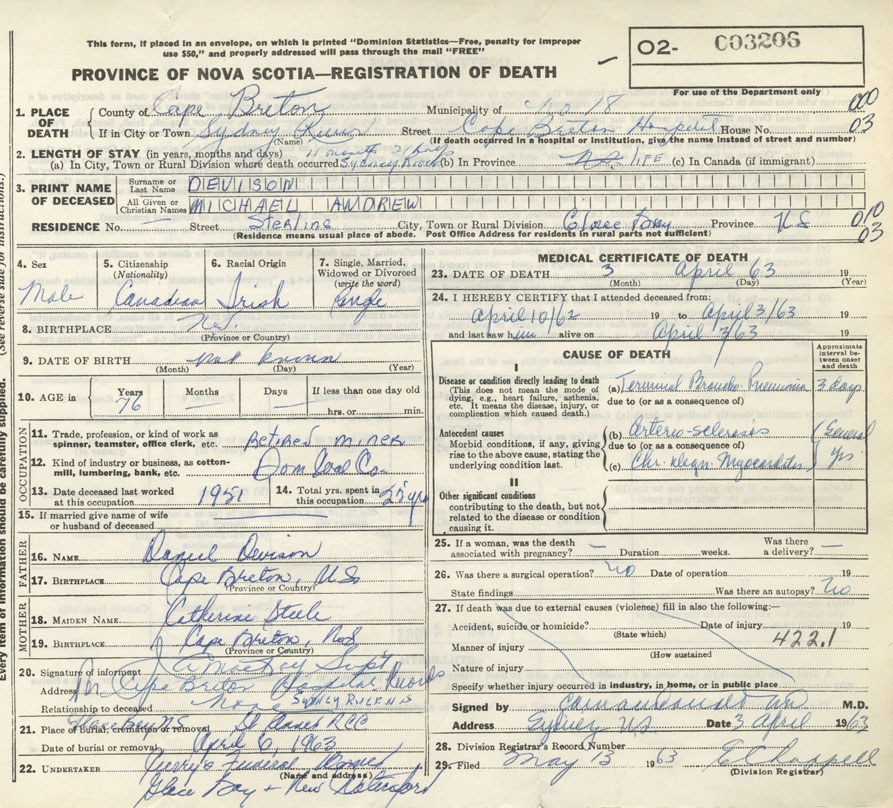 This form, if placed in an envelope, on which is printed "Dominion Statistics—Free, penalty for improper
use $50," and properly addressed will pass through the mail "FREE"
O2- 003206
PROVINCE OF NOVA SCOTIA—REGISTRATION OF DEATH
For use of the Department only
1. PLACE OF DEATH
County of Cape Breton Municipality of No 18 000
If in City or Town Sydney River Street Cape Breton Hospital House No. 03
(Name) (If death occurred in a hospital or institution, give the name instead of street and number)
2. LENGTH OF STAY (in years, months and days) 11 months 21 days
(a) In City, Town or Rural Division where death occurred Sydney River (b) In Province LIFE (c) In Canada (if immigrant)
3. PRINT NAME OF DECEASED
Surname or Last Name DEVISON
All Given or Christian Names MICHAEL ANDREW
RESIDENCE No. — Street Sterling City, Town or Rural Division Glace Bay Province N.S 010
(Residence means usual place of abode. Post Office Address for residents in rural parts not sufficient) 03
4. Sex Male
5. Citizenship (Nationality) Canadian
6. Racial Origin Irish
7. Single, Married, Widowed or Divorced (write the word) Single
8. BIRTHPLACE N.S.
(Province or Country)
9. DATE OF BIRTH not known
(Month) (Day) (Year)
10. AGE in Years 76 Months — Days — If less than one day old
hrs. or min.
OCCUPATION
11. Trade, profession, or kind of work as spinner, teamster, office clerk, etc. Retired miner
12. Kind of industry or business, as cotton-mill, lumbering, bank, etc. Dom Coal Co.
13. Date deceased last worked at this occupation 1951 14. Total yrs. spent in this occupation
15. If married give name of wife or husband of deceased —
FATHER
16. NAME Daniel Devison
17. BIRTHPLACE Cape Breton, N.S
(Province or Country)
MOTHER
18. MAIDEN NAME Catherine Steele
19. BIRTHPLACE Cape Breton, N.S
(Province or Country)
20. Signature of informant Supt
Address Cape Breton Hospital Records
SYDNEY RIVER N S
Relationship to deceased None
21. Place of burial, cremation or removal Glace Bay NS St Annes RCC
Date of burial or removal April 6, 1963
22. UNDERTAKER Curry's Funeral
(Name and address)
Glace Bay + New Waterford
MEDICAL CERTIFICATE OF DEATH
23. DATE OF DEATH 3 April 63 19
(Month) (Day) (Year)
24. I HEREBY CERTIFY that I attended deceased from:
April 10/62 19 to April 3/63 19
and last saw him alive on April 3/63 19
CAUSE OF DEATH
Approximate interval between onset and death
I
Disease or condition directly leading to death
(This does not mean the mode of dying, e.g., heart failure, asthenia, etc. It means the disease, injury, or complication which caused death.)
(a) Terminal Broncho Pneumonia 3 days
due to (or as a consequence of)
Antecedent causes
Morbid conditions, if any, giving rise to the above cause, stating the underlying condition last.
(b) Arterio-sclerosis Several yrs
due to (or as a consequence of)
(c) Chr. degn. Myocarditis
II
Other significant conditions
contributing to the death, but not related to the disease or condition causing it.
25. If a woman, was the death associated with pregnancy? — Duration weeks. Was there a delivery? —
26. Was there a surgical operation? no Date of operation 19
State findings Was there an autopsy? No
27. If death was due to external causes (violence) fill in also the following:—
Accident, suicide or homicide? Date of injury 19
(State which)
Manner of injury 422.1
(How sustained
Nature of injury
Specify whether injury occurred in industry, in home, or in public place
Signed by M.D.
Address Sydney NS Date 3 April 1963
28. Division Registrar's Record Number
29. Filed May 13 1963 E C Chappell
(Division Registrar)
(See reverse side for instructions.)
Every item of information should be carefully supplied.